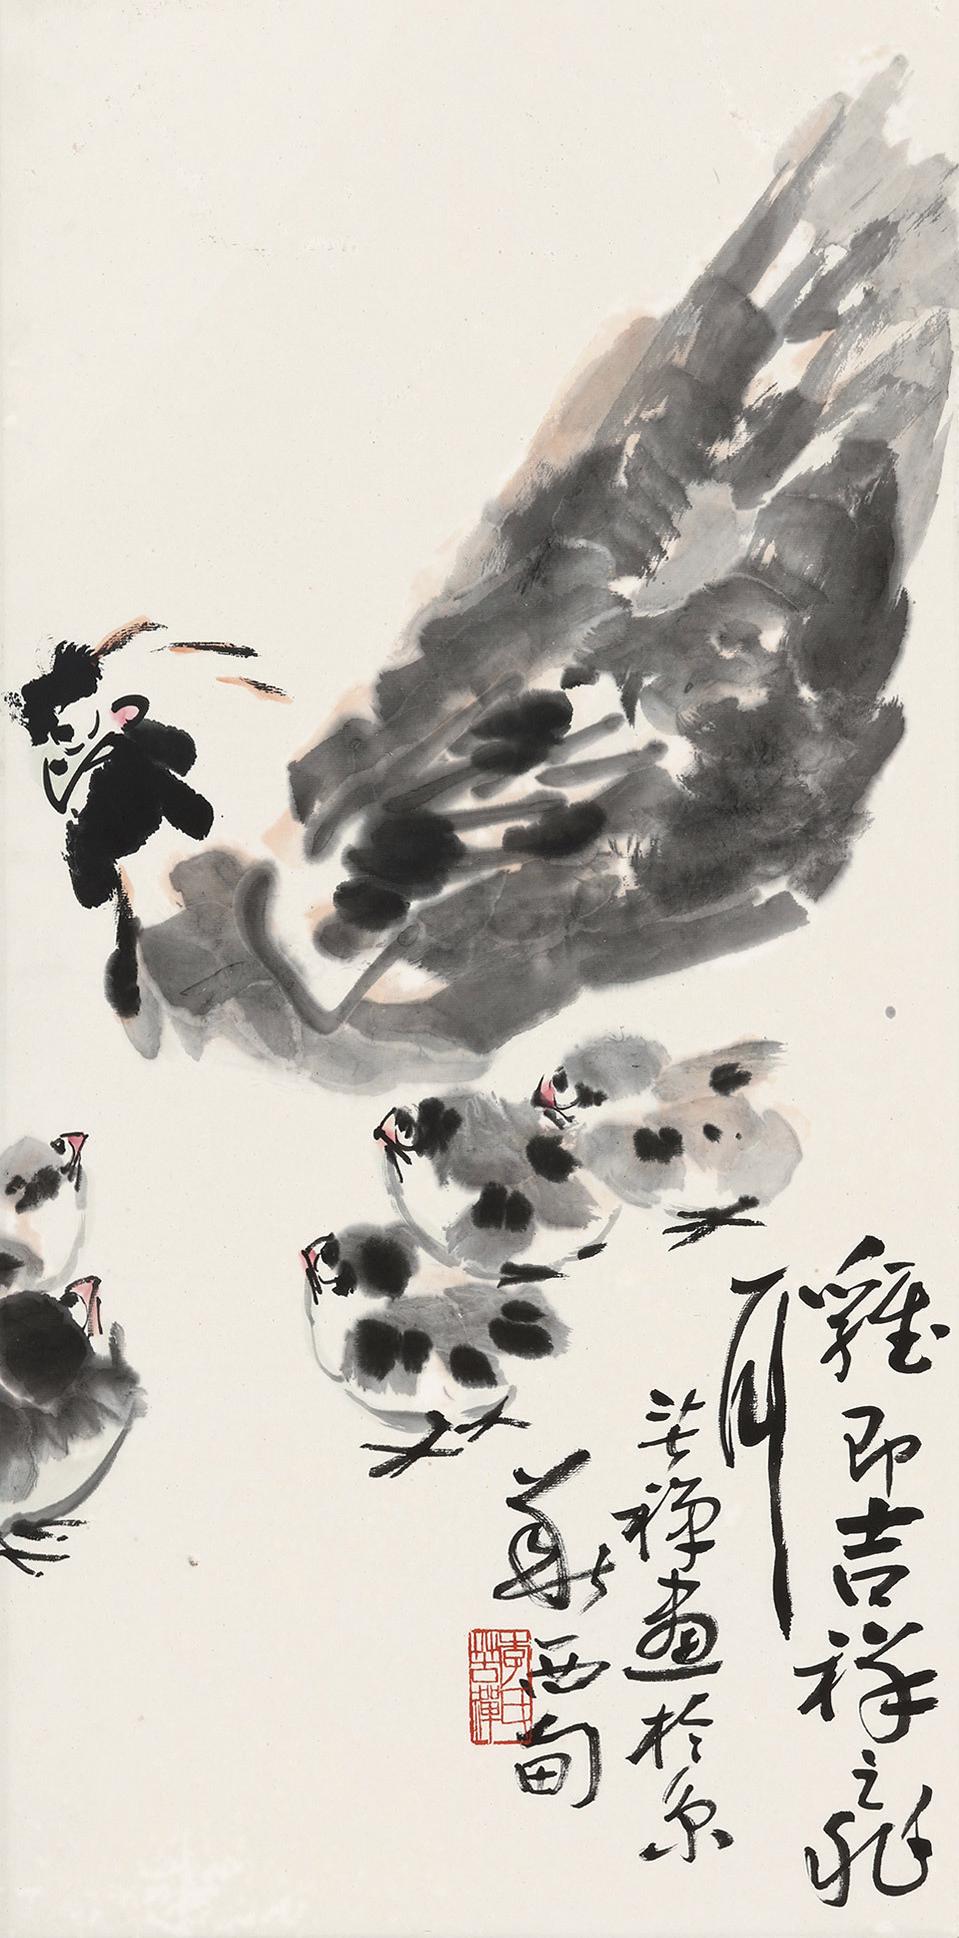 雞即吉祥之兆
耳
苦禪畫於京
華西甸
李氏苦禪